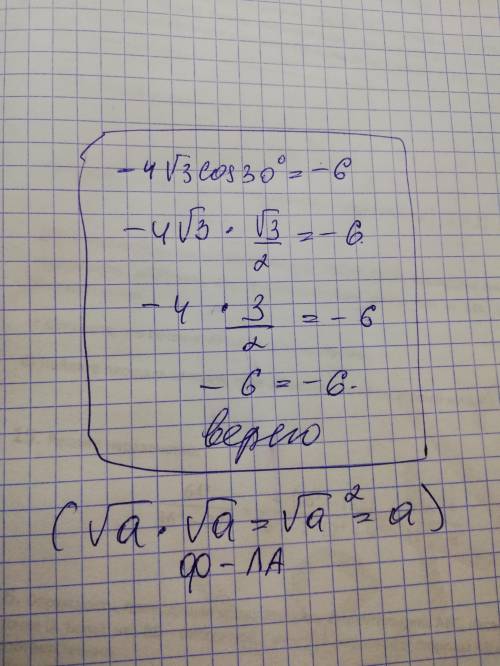 -4√3cos30°=-6
-4√3·√3/2=-6.
-4·3/2=-6
-6=-6.
верно
(√a·√a=√a²=a)
ФО-ЛА